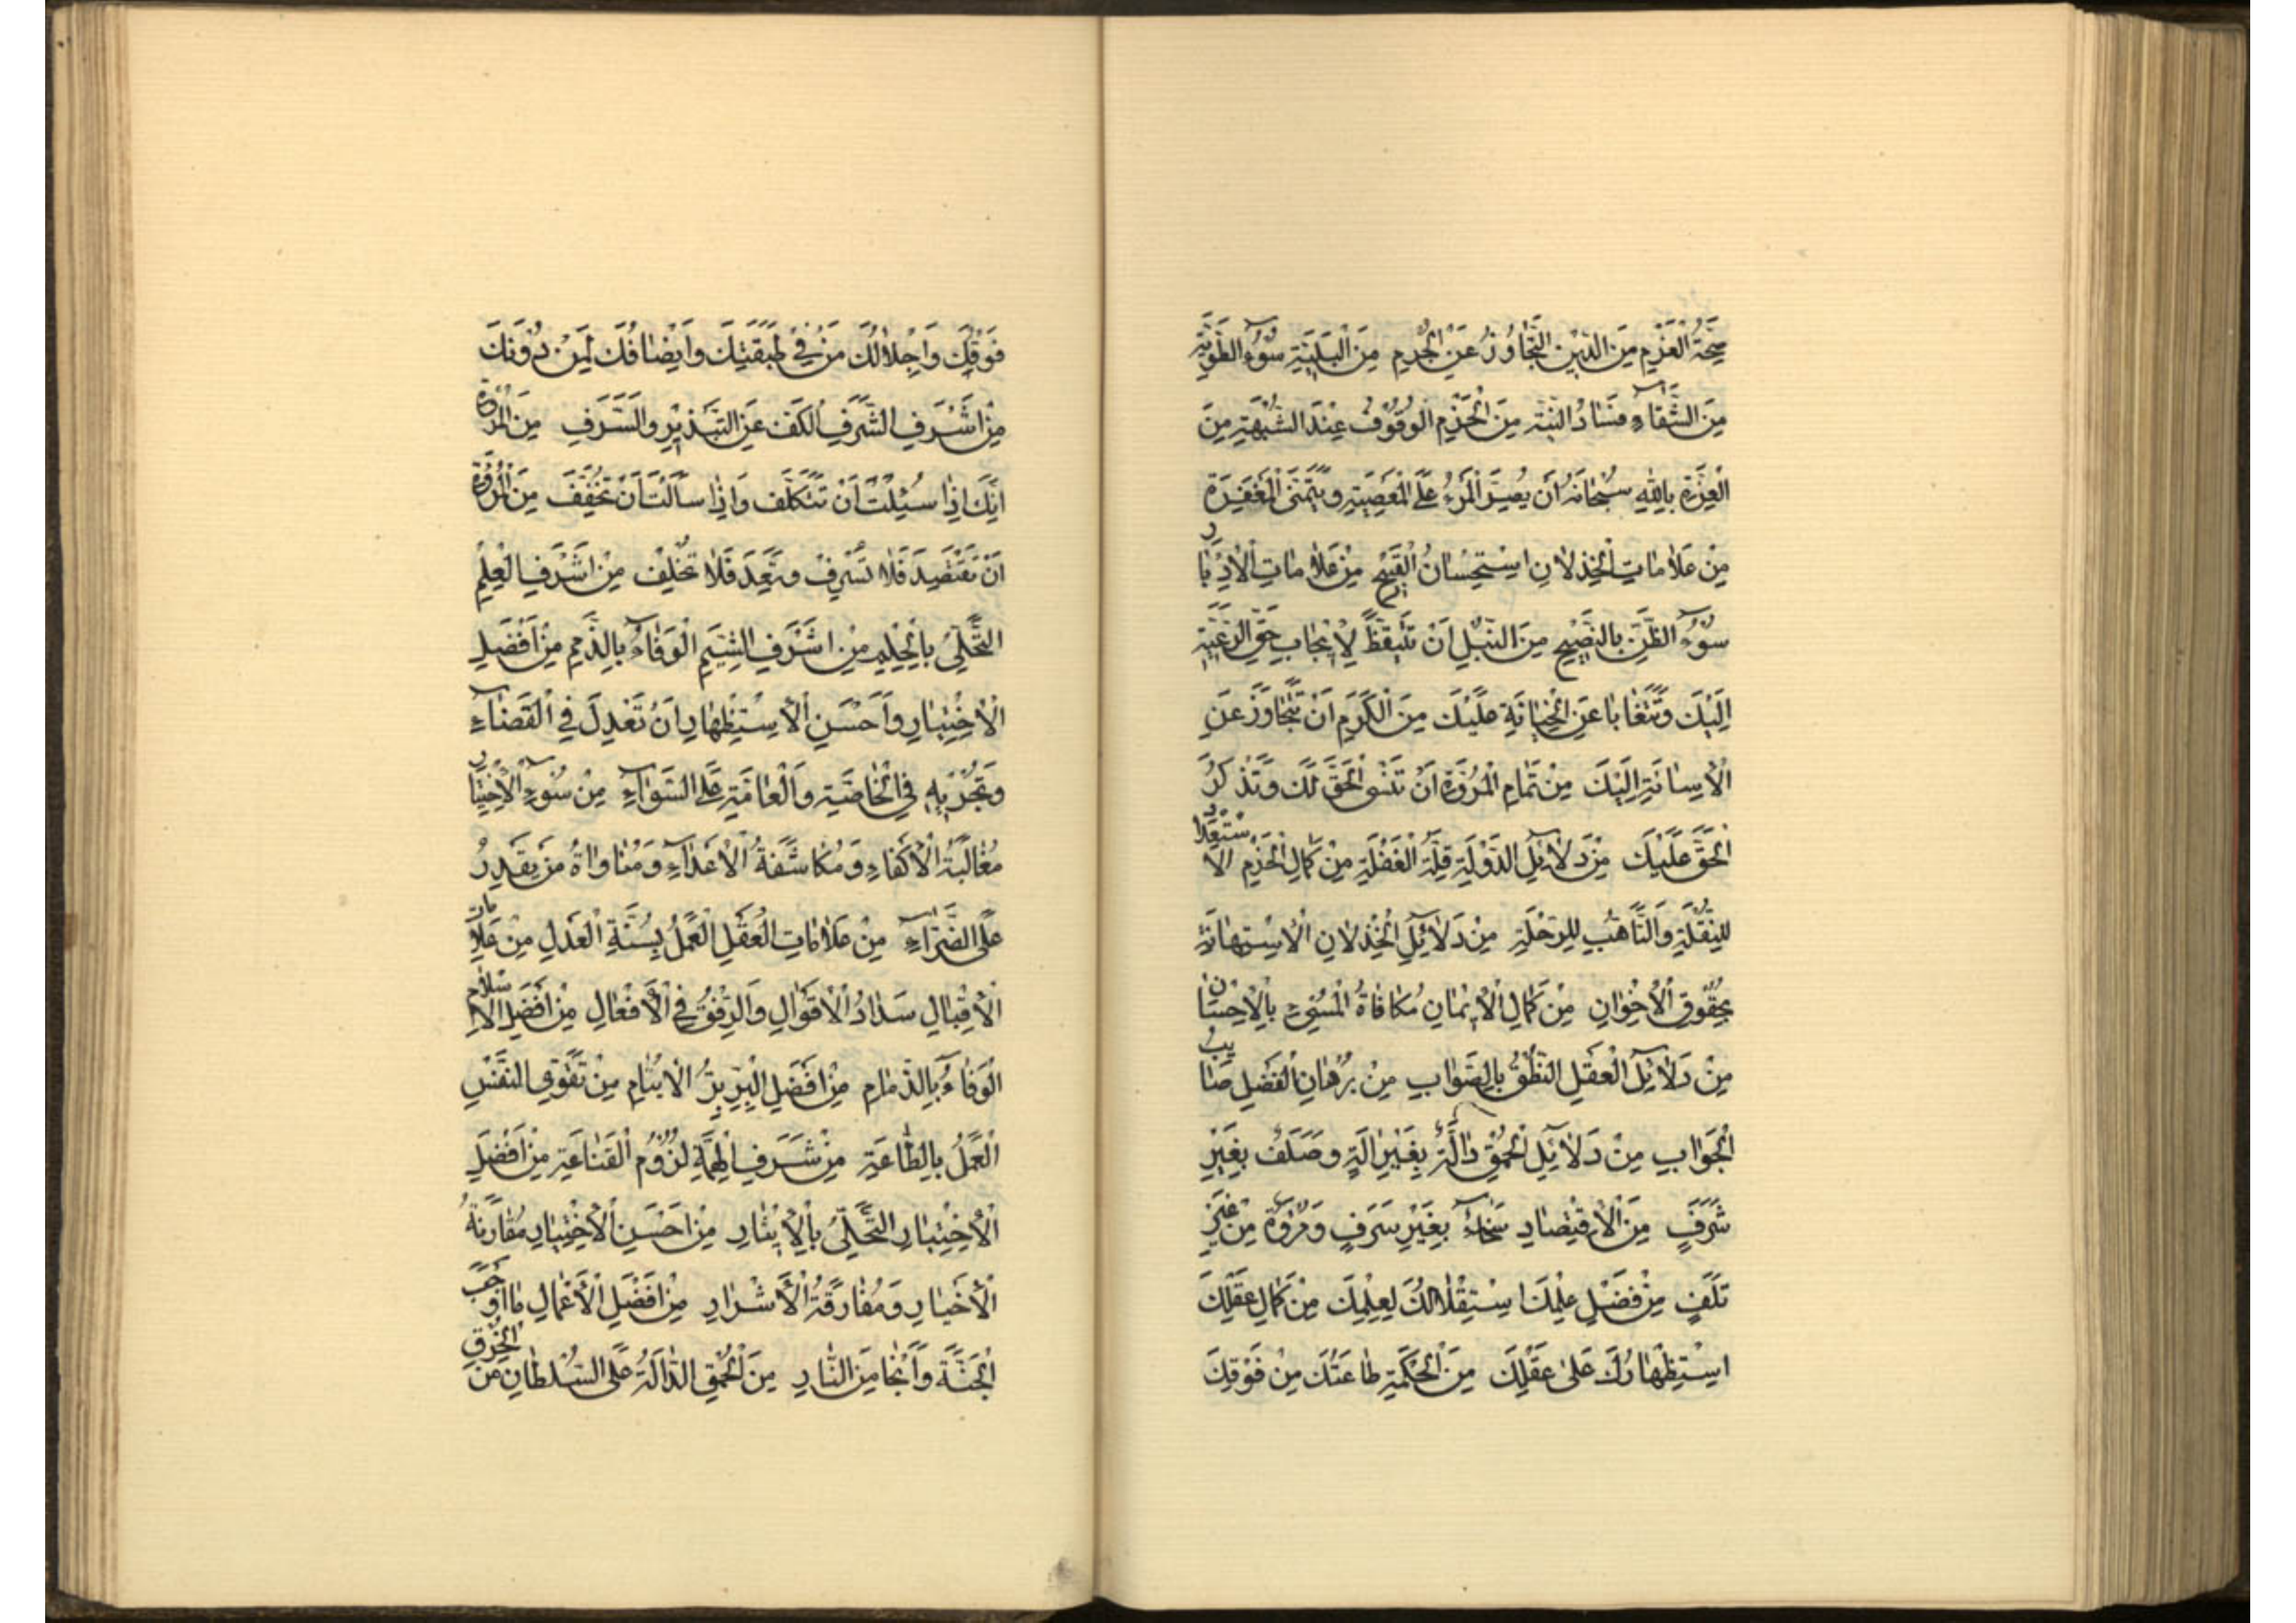 صِحَّةُ الْعَزْمِ مِنَ الدِّينِ التَّجَاوُزُ عَنِ الْجُرْمِ مِنَ الْبَلِيَّةِ سُوءُ الطَّوِيَّةِ
مِنَ الشَّقَاءِ فَسَادُ النِّيَّةِ مِنَ الْحَزْمِ الْوُقُوفُ عِنْدَ الشُّبْهَةِ مِنَ
الْغِرَّةِ بِاللهِ سُبْحَانَهُ أَنْ يُصِرَّ الْمَرْءُ عَلَى الْمَعْصِيَةِ وَيَتَمَنَّى الْمَغْفِرَةَ
مِنْ عَلَامَاتِ الْخِذْلَانِ اسْتِحْسَانُ الْقَبِيحِ مِنْ عَلَامَاتِ الْإِدْبَارِ
سُوءُ الظَّنِّ بِالنَّصِيحِ مِنَ النُّبْلِ أَنْ تَتَيَقَّظَ لِإِيجَابِ حَقِّ الرَّغْبَةِ
إِلَيْكَ وَتَتَغَابَا عَنِ الْجِنَايَةِ عَلَيْكَ مِنَ الْكَرَمِ أَنْ تَتَجَاوَزَ عَنِ
الْإِسَائَةِ إِلَيْكَ مِنْ تَمَامِ الْمُرُوَّةِ أَنْ تَنْسَى الْحَقَّ لَكَ وَتَذْكُرَ
الْحَقَّ عَلَيْكَ مِنْ دَلَائِلِ الدَّوْلَةِ قِلَّةُ الْغَفْلَةِ مِنْ كَمَالِ الْحَزْمِ الْاِسْتِعْدَادُ
لِلنُّقْلَةِ وَالتَّأَهُّبُ لِلرِّحْلَةِ مِنْ دَلَائِلِ الْخِذْلَانِ الْاِسْتِهَانَةُ
بِحُقُوقِ الْإِخْوَانِ مِنْ كَمَالِ الْإِيمَانِ مُكَافَاةُ الْمُسِيءِ بِالْإِحْسَانِ
مِنْ دَلَائِلِ الْعَقْلِ النُّطْقُ بِالصَّوَابِ مِنْ بُرْهَانِ الْفَضْلِ صَائِبُ
الْجَوَابِ مِنْ دَلَائِلِ الْحُمْقِ دَالَّةٌ بِغَيْرِ آلَةٍ وَصَلَفٌ بِغَيْرِ
شَرَفٍ مِنَ الْاِقْتِصَادِ سَخَاءٌ بِغَيْرِ سَرَفٍ وَمُرُوَّةٌ مِنْ غَيْرِ
تَلَفٍ مِنْ فَضْلِ عِلْمِكَ اسْتِقْلَالُكَ لِعِلْمِكَ مِنْ كَمَالِ عَقْلِكَ
اسْتِظْهَارُكَ عَلَى عَقْلِكَ مِنَ الْحِكْمَةِ طَاعَتُكَ مِنْ فَوْقِكَ
فَوْقِكَ وَإِجْلَالُكَ مَنْ فِي طَبَقَتِكَ وَإِنْصَافُكَ لِمَنْ دُونَكَ
مِنْ أَشْرَفِ الشَّرَفِ الْكَفُّ عَنِ التَّبْذِيرِ وَالسَّرَفِ مِنَ الْمُرُوَّةِ
أَنَّكَ إِذَا سُئِلْتَ أَنْ تَتَكَلَّفَ وَإِذَا سَأَلْتَ أَنْ تُخَفِّفَ مِنَ الْمُرُوَّةِ
أَنْ تَقْتَصِدَ فَلَا تُسْرِفَ وَتَعِدَ فَلَا تُخْلِفَ مِنْ أَشْرَفِ الْعِلْمِ
التَّحَلِّي بِالْحِلْمِ مِنْ أَشْرَفِ الشِّيَمِ الْوَفَاءُ بِالذِّمَمِ مِنْ أَفْضَلِ
الْاِخْتِيَارِ وَأَحْسَنِ الْاِسْتِظْهَارِ أَنْ تَعْدِلَ فِي الْقَضَاءِ
وَتُجْرِيَهُ فِي الْخَاصَّةِ وَالْعَامَّةِ عَلَى السَّوَاءِ مِنْ سُوءِ الْاِخْتِيَارِ
مُغَالَبَةُ الْأَكْفَاءِ وَمُكَاشَفَةُ الْأَعْدَاءِ وَمُنَاوَاةُ مَنْ يَقْدِرُ
عَلَى الضَّرَّاءِ مِنْ عَلَامَاتِ الْعَقْلِ الْعَمَلُ بِسُنَّةِ الْعَدْلِ مِنْ عَلَامَاتِ
الْإِقْبَالِ سَدَادُ الْأَقْوَالِ وَالرِّفْقُ فِي الْأَفْعَالِ مِنْ أَفْضَلِ الْإِسْلَامِ
الْوَفَاءُ بِالذِّمَامِ مِنْ أَفْضَلِ الْبِرِّ بِرُّ الْأَيْتَامِ مِنْ تَقْوَى النَّفْسِ
الْعَمَلُ بِالطَّاعَةِ مِنْ شَرَفِ الْهِمَّةِ لُزُومُ الْقَنَاعَةِ مِنْ أَفْضَلِ
الْاِخْتِيَارِ التَّحَلِّي بِالْإِيثَارِ مِنْ أَحْسَنِ الْاِخْتِيَارِ مُقَارَنَةُ
الْأَخْيَارِ وَمُفَارَقَةُ الْأَشْرَارِ مِنْ أَفْضَلِ الْأَعْمَالِ مَا أَوْجَبَ
الْجَنَّةَ وَأَنْجَا مِنَ النَّارِ مِنَ الْحُمْقِ الدَّالَّةُ عَلَى السُّلْطَانِ مِنَ الْخُرْقِ